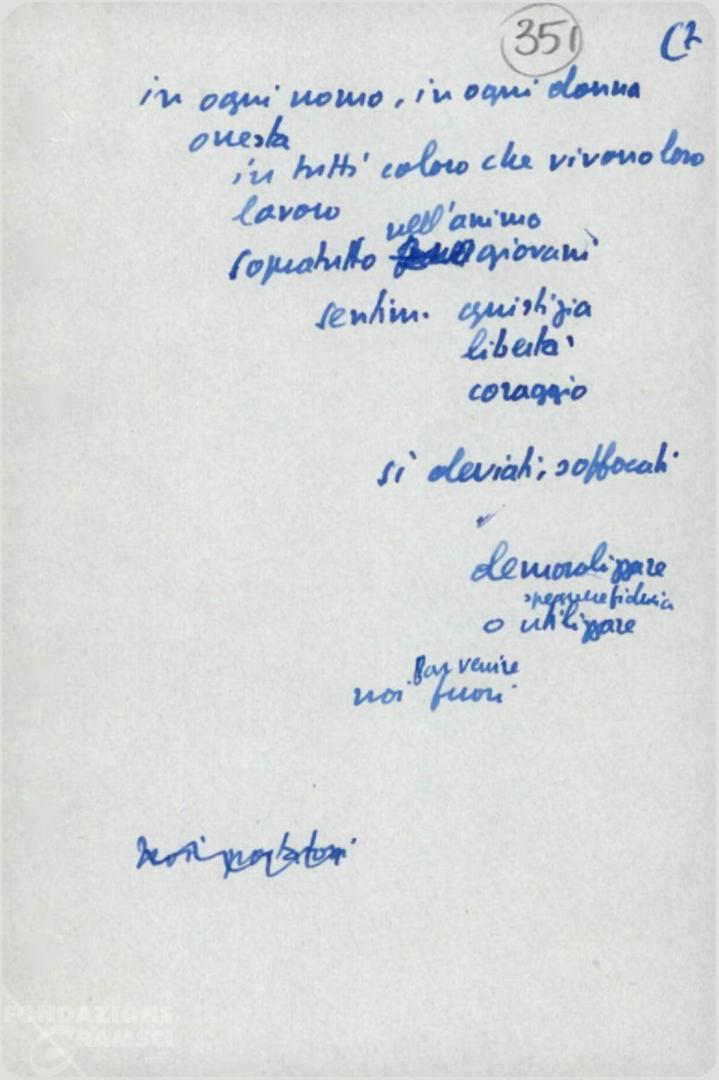 351 C7
in ogni uomo, in ogni donna
onesta
in tutti coloro che vivono loro
lavoro
nell'animo
sopratutto giovani
sentim. giustizia
libertà
coraggio
si deviati, soffocati
demoralizzare
spegnere fiducia
o utilizzare
far venire
noi fuori
noi portatori
FONDAZIONE
GRAMSCI